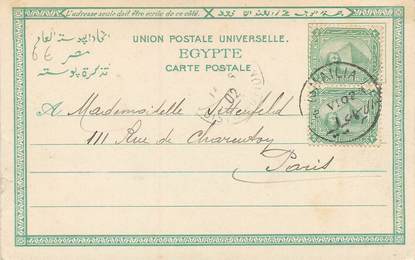 L'adresse seule doit être écrite de ce côté.
UNION POSTALE UNIVERSELLE.
EGYPTE
CARTE POSTALE
اتحاد بوستة العام
مصر
تذكرة بوستة
6€
A Mademoiselle Sittenfeld
111 Rue de Charenton
Paris
ISMAILIA
02